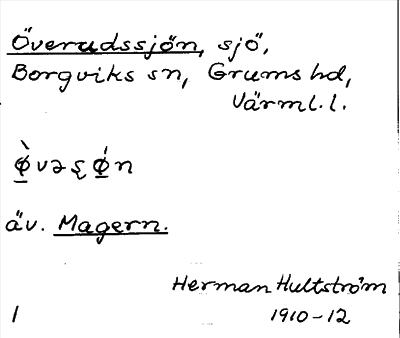 Överudssjön, sjö,
Borgviks sn, Grums hd,
Värml. l.
ø̠̀vəʂǿ̠n
äv. Magern.
Herman Hultström
1 1910-12